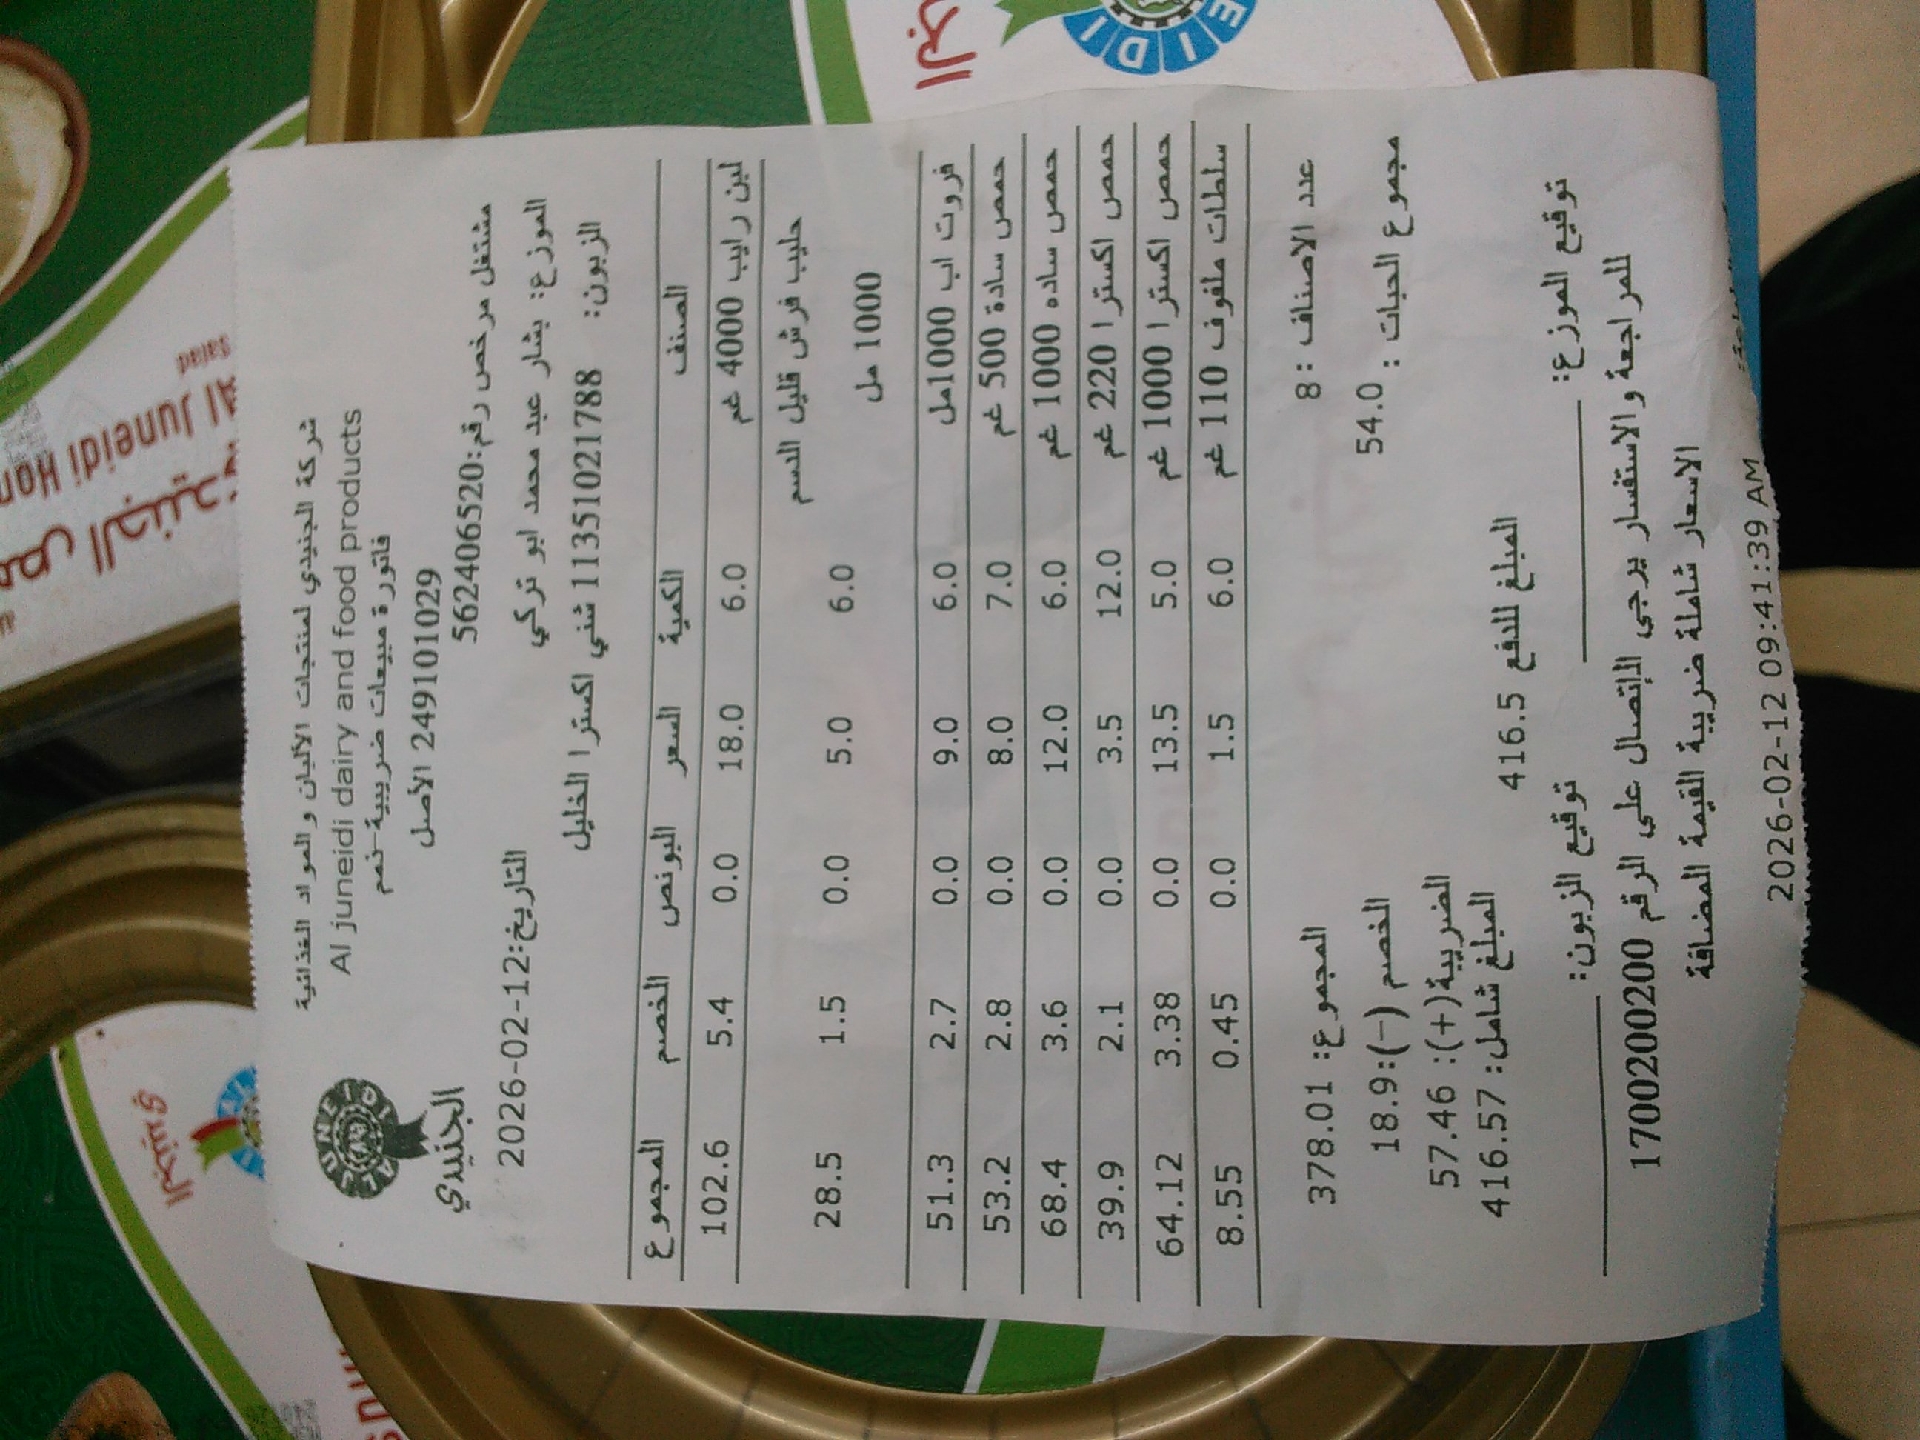 شركة الجنيدي لمنتجات الألبان و المواد الغذائية
Al juneidi dairy and food products
فاتورة مبيعات ضريبية-نمم
249101029 الأصل
مشتغل مرخص رقم:562406520
الجنيدي
الموزع: بشار عبد محمد ابو تركي
التاريخ:2026-02-12
الزبون: 11351021788 شني اكسترا الخليل
الصنف الكمية السعر البونص الخصم المجموع
لبن رايب 4000 غم 6.0 18.0 0.0 5.4 102.6
حليب فرش قليل الدسم 1000 مل 6.0 5.0 0.0 1.5 28.5
فروت اب 1000مل 6.0 9.0 0.0 2.7 51.3
حمص سادة 500 غم 7.0 8.0 0.0 2.8 53.2
حمص ساده 1000 غم 6.0 12.0 0.0 3.6 68.4
حمص اكسترا 220 غم 12.0 3.5 0.0 2.1 39.9
حمص اكسترا 1000 غم 5.0 13.5 0.0 3.38 64.12
سلطات ملفوف 110 غم 6.0 1.5 0.0 0.45 8.55
عدد الاصناف : 8
المجموع: 378.01
مجموع الحبات : 54.0
الخصم (-):18.9
الضريبة(+): 57.46
المبلغ شامل: 416.57
المبلغ للدفع 416.5
توقيع الموزع:
توقيع الزبون:
للمراجعة والاستفسار يرجى الإتصال على الرقم 1700200200
الاسعار شاملة ضريبة القيمة المضافة
2026-02-12 09:41:39 AM